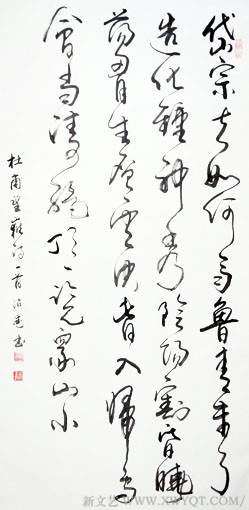 岱宗夫如何齐鲁青未了
造化钟神秀阴阳割昏晓
荡胸生层云决眥入归鸟
会当凌绝顶一览众山小
杜甫望岳诗一首
新文艺 WWW.XWYQT.COM